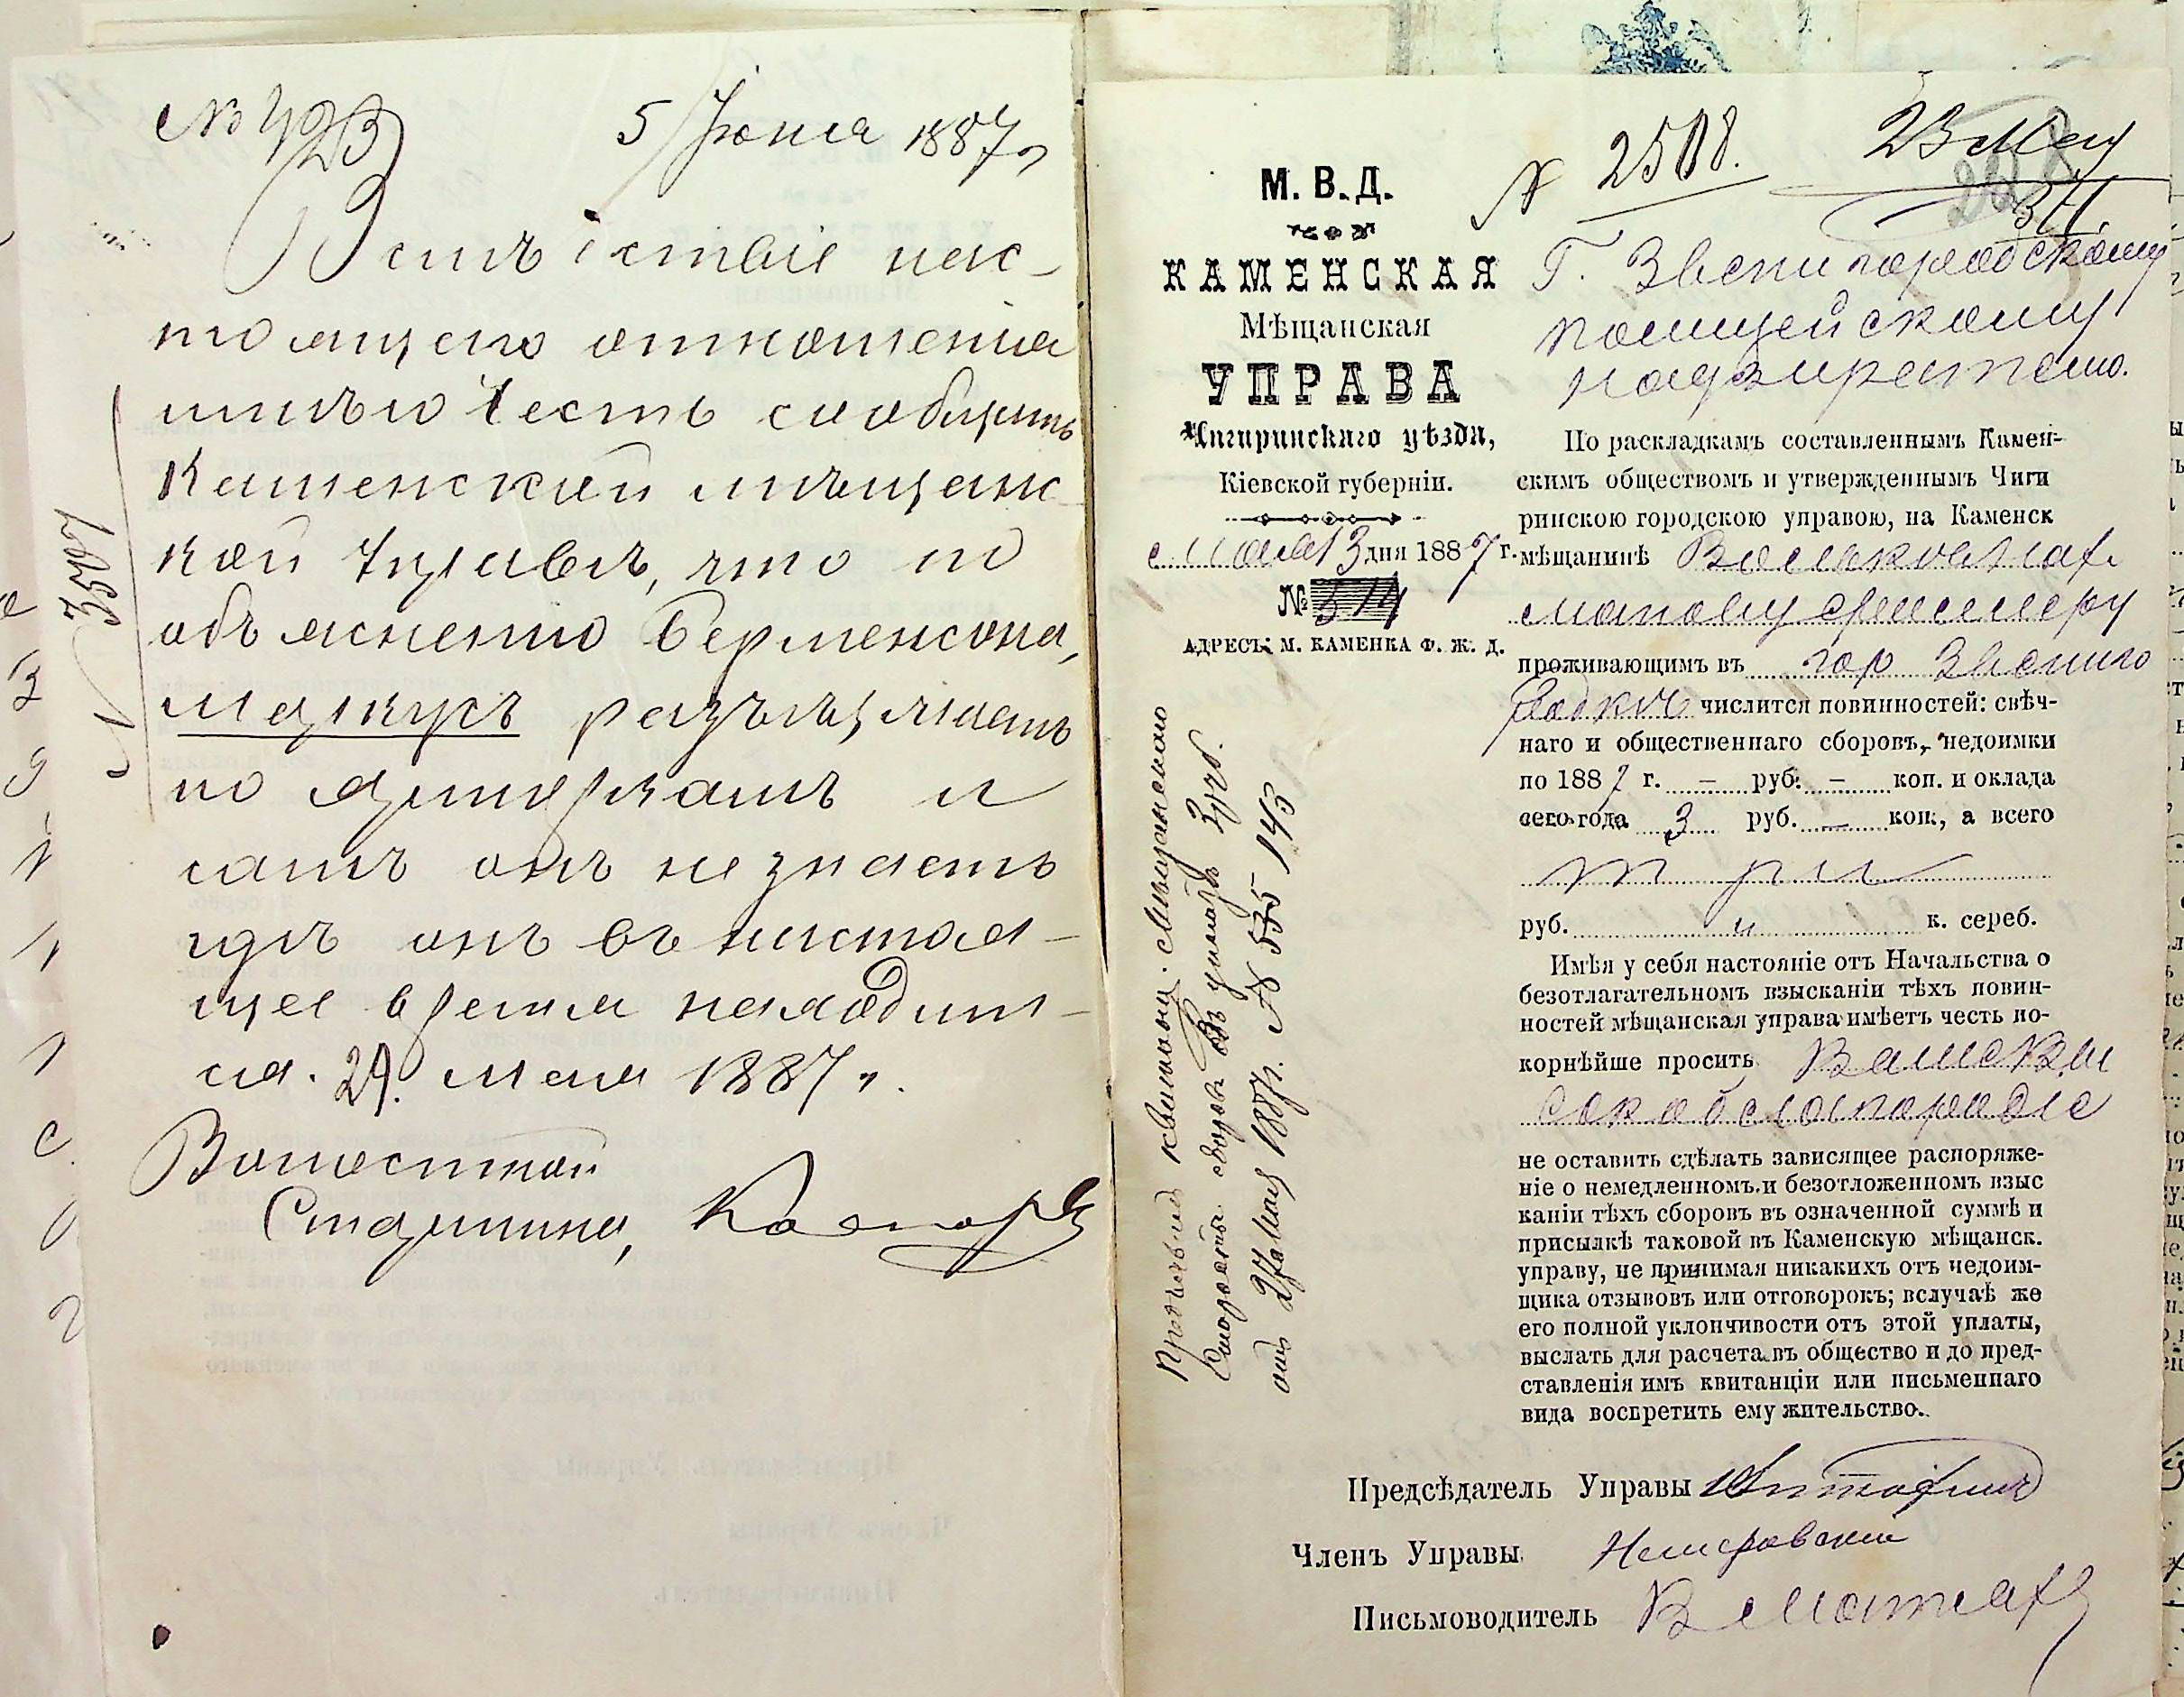 № 423 5 Июня 1887 г
Вслѣдствіе нас-
тоящего отношенія
имѣю честь сообщить
Каменской мѣщанс-
кой Управѣ, что по
объясненію Берменсона,
Маркусъ разъѣзжаетъ
по ярмаркамъ и
самъ онъ не знаетъ
гдѣ онъ въ настоя-
щее время находит-
ся. 29 мая 1887 г.
Староста,
3507
№ 2508. 23 Мая
М. В. Д.
КАМЕНСКАЯ
Мѣщанская
УПРАВА
Чигиринскаго уѣзда,
Кіевской губерніи.
Мая 13 дня 1887 г.
№ 514
АДРЕСЪ: М. КАМЕНКА Ф. Ж. Д.
Г. Звенигородскому
полицейскому
надзирателю.
По раскладкамъ составленнымъ Камен-
скимъ обществомъ и утвержденнымъ Чиги
ринскою городскою управою, на Каменск
мѣщанинѣ
проживающимъ въ гор Звениго
родкѣ числится повинностей: свѣч-
наго и общественнаго сборовъ, недоимки
по 1887 г. – руб. – коп. и оклада
сего года 3 руб. – коп, а всего
три
руб. " к. сереб.
Имѣя у себя настояніе отъ Начальства о
безотлагательномъ взысканіи тѣхъ повин-
ностей мѣщанская управа имѣетъ честь по-
корнѣйше просить Ваше Вы
сокоблагородіе
не оставить сдѣлать зависящее распоряже-
ніе о немедленномъ и безотложенномъ взыс
каніи тѣхъ сборовъ въ означенной суммѣ и
присылкѣ таковой въ Каменскую мѣщанск.
управу, не принимая никакихъ отъ недоим-
щика отзывовъ или отговорокъ; вслучаѣ же
его полной уклончивости отъ этой уплаты,
выслать для расчета въ общество и до пред-
ставленія имъ квитанціи или письменнаго
вида воспретить ему жительство.
Предсѣдатель Управы
Членъ Управы Немировскій
Письмоводитель
Предъявилъ квитанцію Мѣщанскаго
Старосты сбора въ уплатѣ 3 руб.
отъ 27 Мая 1887 г. № 535/143